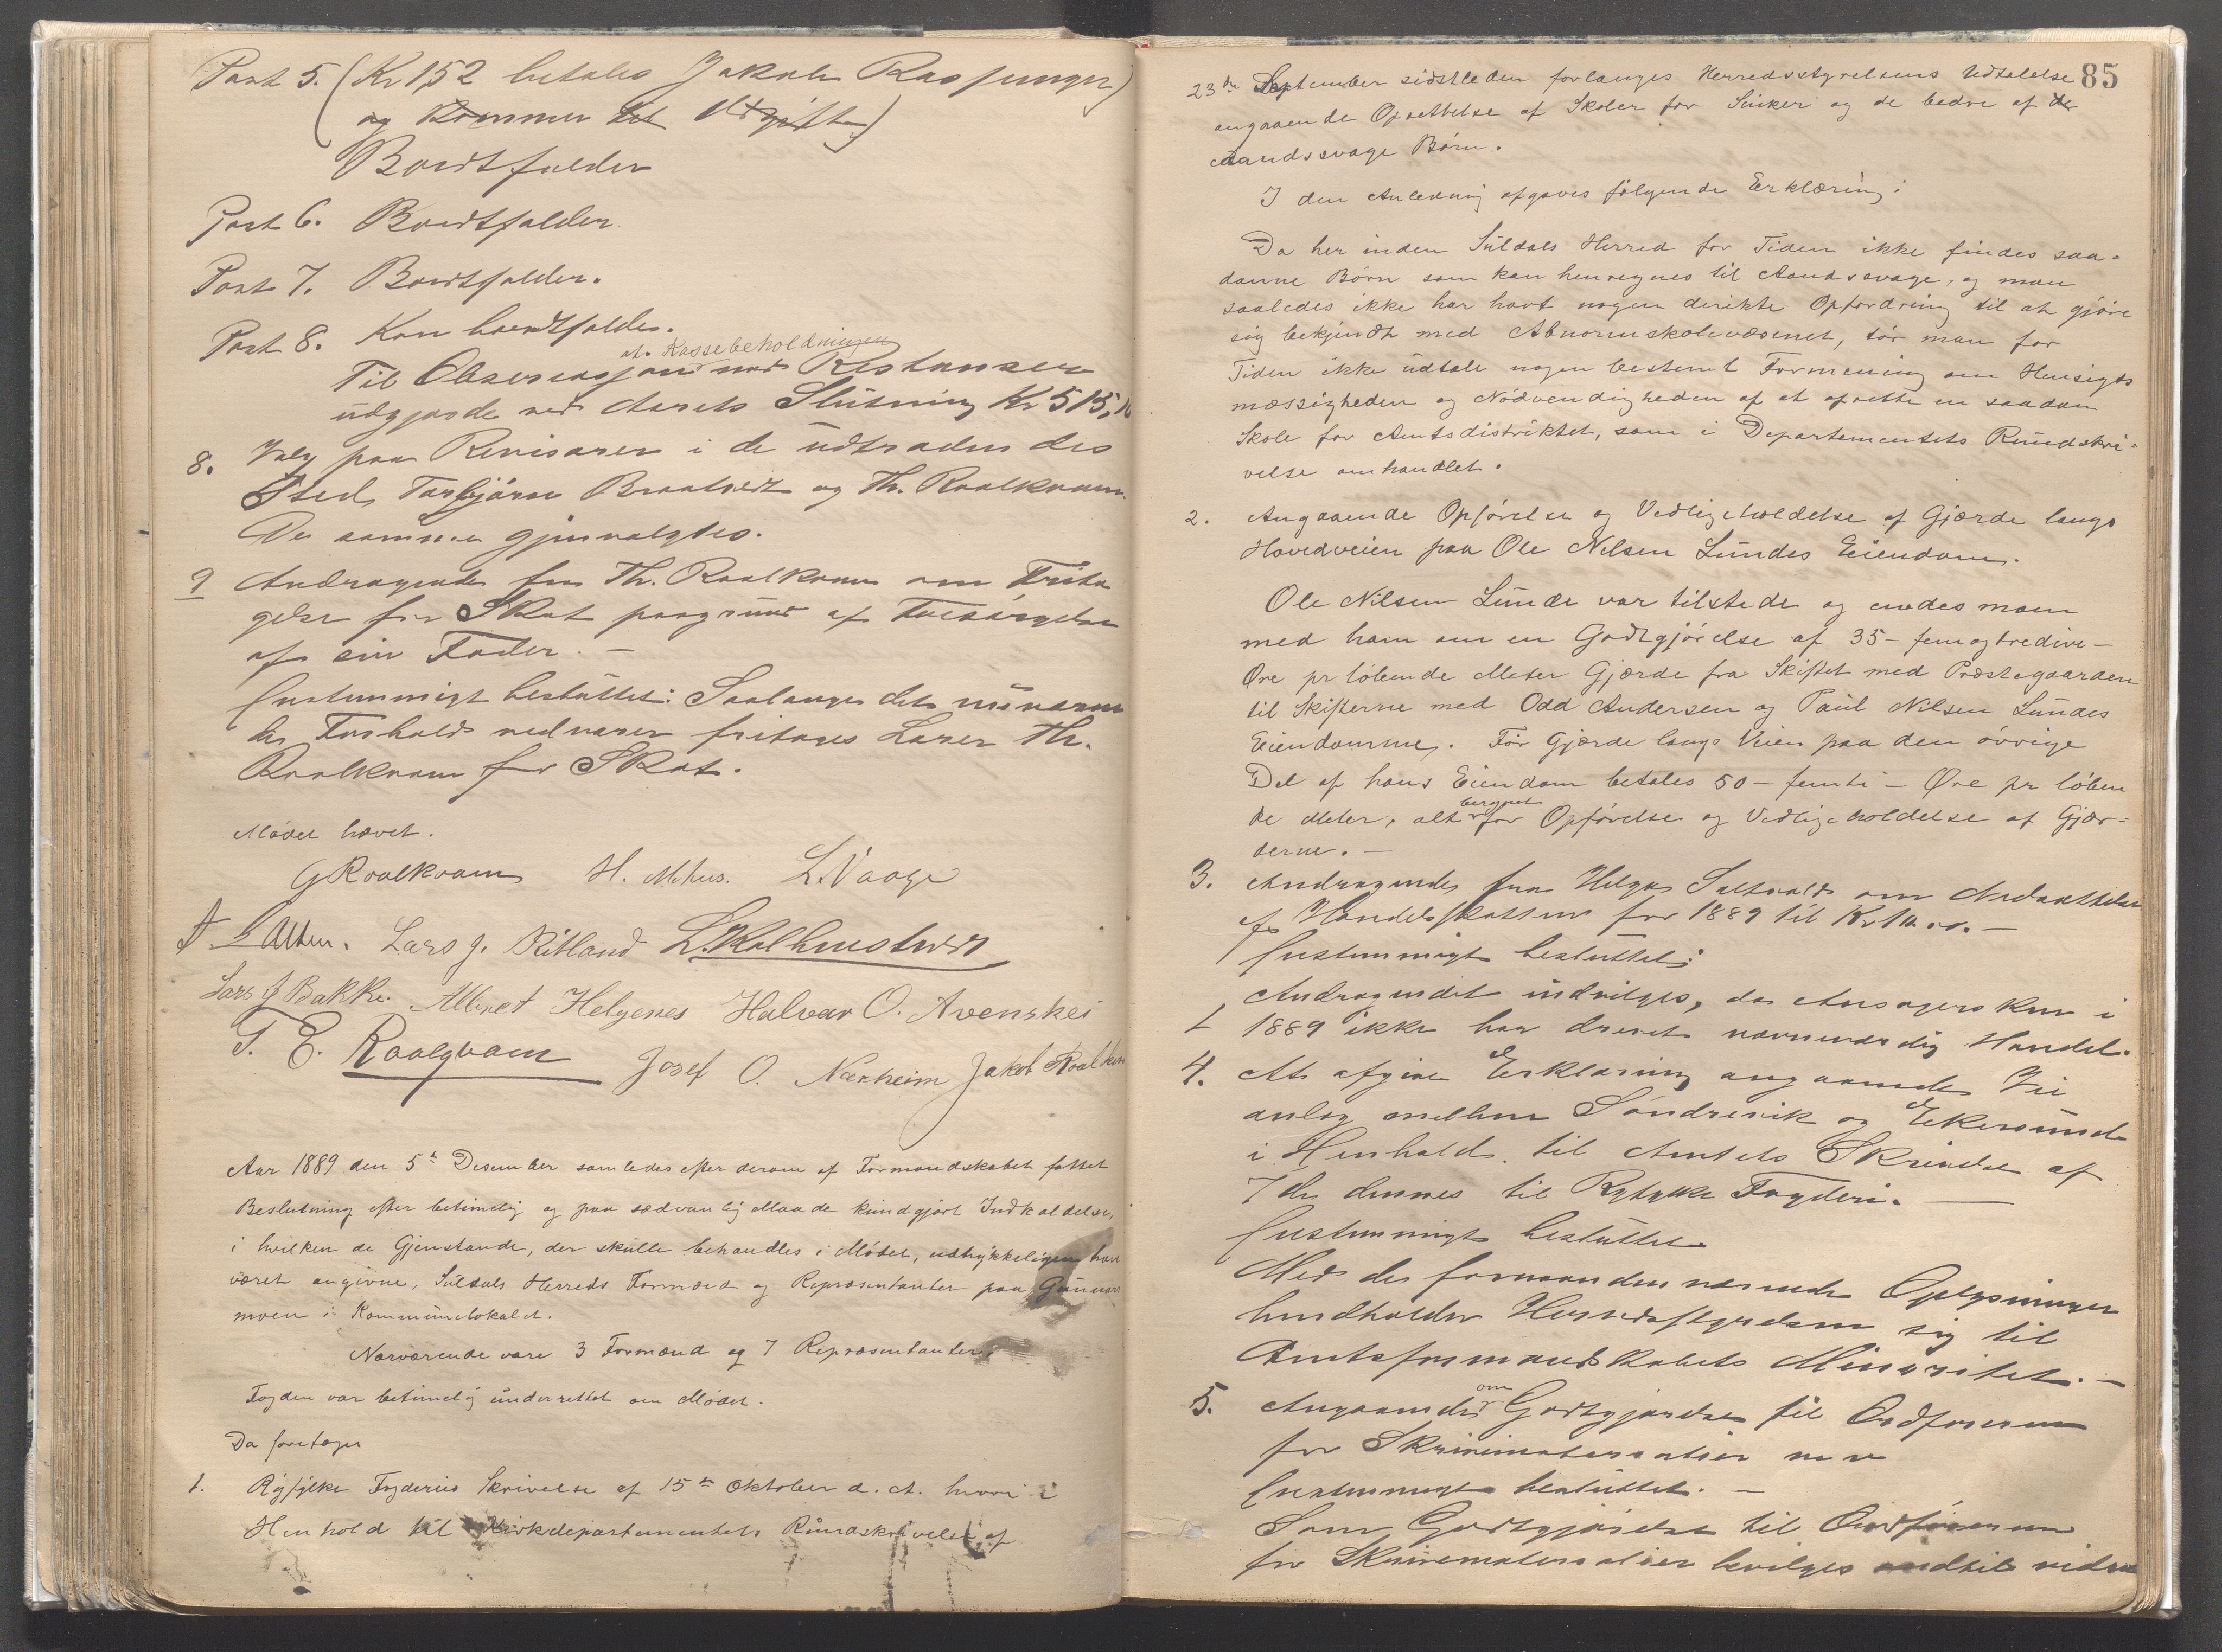 Post 5. (Kr 152 betales Jakob
og Kommer til Udgift)
Bortfalder
Post 6. Bortfalder.
Post 7. Bortfalder.
Post 8. Kan bortfalde.
at Kassebeholdningen
Til Observasjon med Restanser
udgjorde ved Aarets Slutning Kr 515,
8. Valg paa Revisorer i de udtrædendes
Sted, Torbjörn og Th. Roalkvam.
De samme gjenvalgtes.
9 Andragende fra Th. Roalkvam om Frita
gelse for Skat paagrund af Forsörgelse
af sin Fader. —
Enstemmigt besluttet: Saalænge det nuværen
de Forhold vedvarer fritages Lærer Th.
Roalkvam for Skat.
Mödet hævet.
G Roalkvam H. Mehus. L. Vaage
Lars J. Ritland L. Kolbenstvedt
Lars J Bakke. Albret Helgenes Halvar O. Avenskei
T. E. Roalqvam Josef O. Nærheim Jakob Roalkvam
Aar 1889 den 5te Desember samledes efter derom af Formandskabet fattet
Beslutning efter betimelig og paa sædvanlig Maade kundgjort Indkaldelse,
i hvilken de Gjenstande, der skulle behandles i Mödet, udtrykkeligen have
været angivne, Suldals Herreds Formænd og Repræsentanter paa Gunnars
moen i Kommunelokalet.
Nærværende vare 3 Formænd og 7 Repræsentanter.
Fogden var betimelig underrettet om Mödet.
Da foretoges
1. Ryfylke Fogderies Skrivelse af 15de Oktober d. A. hvori i
Henhold til Kirkedepartementets Rundskrivelse af
85
23de September sidstleden forlanges Herredsstyrelsens Udtalelse
angaaende Oprettelse af Skoler for Sinker og de bedre af de
Aandssvage Börn.
I den Anledning afgaves fölgende Erklæring:
Da her inden Suldals Herred for Tiden ikke findes saa-
danne Börn som kan henregnes til Aandssvage, og man
saaledes ikke har havt nogen direkte Opfordring til at gjöre
sig bekjendt med Abnormskolevæsenet, tör man for
Tiden ikke udtale nogen bestemt Formening om Hensigts
mæssigheden og Nödvendigheden af at oprette en saadan
Skole for Amtsdistriktet, som i Departementets Rundskri-
velse omhandlet.
2. Angaaende Opförelse og Vedligeholdelse af Gjærde langs
Hovedveien paa Ole Nilsen Lundes Eiendom.
Ole Nilsen Lunde var tilstede og enedes man
med ham om en Godtgjörelse af 35 - fem og tredive -
Öre pr löbende Meter Gjærde fra Skiftet med Præstegaarden
til Skifterne med Odd Andersen og Paul Nilsen Lundes
Eiendomme. For Gjærde langs Veien paa den övrige
Del af hans Eiendom betales 50 - femti - Öre pr löben
beregnet
de Meter, alt for Opförelse og Vedligeholdelse af Gjær-
derne. —
3. Andragende fra Helga om Nedsættelse
af Handelsskatten for 1889 til Kr 10.00. —
Enstemmigt besluttet:
Andragendet indvilges, da Ansögersken i
1889 ikke har drevet nævneværdig Handel.
4. At afgive Erklæring angaaende Vei
anlæg mellem Söndrevik og Ekersund
i Henhold til Amtets Skrivelse af
7de dennes til Ryfylke Fogderi. —
Enstemmigt besluttet
Med de forhaandenværende Oplysninger
henholder Herredsstyrelsen sig til
Amtsformandskabets Minoritet. —
om
5. Angaaende Godtgjörelse til Ordföreren
for Skrivematerialier m v
Enstemmigt besluttet. —
Som Godtgjörelse til Ordföreren
for Skrivematerialier bevilges indtil videre